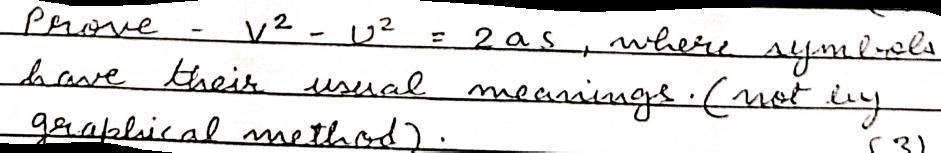 Prove - V² - U² = 2as, where symbols
have their usual meanings. (not by
graphical method). (3)